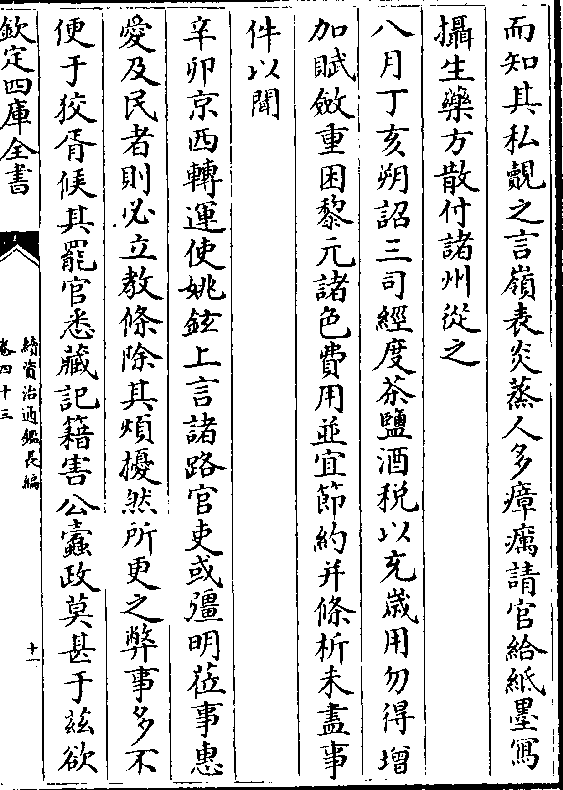 而知其私覿之言嶺表炎蒸人多瘴癘請官給紙墨寫
攝生藥方散付諸州從之
八月丁亥朔詔三司經度茶鹽酒税以充歳用勿得增
加賦斂重困黎元諸色費用並宜節約并條析未盡事
件以聞
辛卯京西轉運使姚鉉上言諸路官吏或彊明莅事惠
愛及民者則必立教條除其煩擾然所更之弊事多不
便于狡胥候其罷官悉藏記籍害公蠹政莫甚于兹欲
欽定四庫全書
續資治通鑑長編
卷四十三
十一